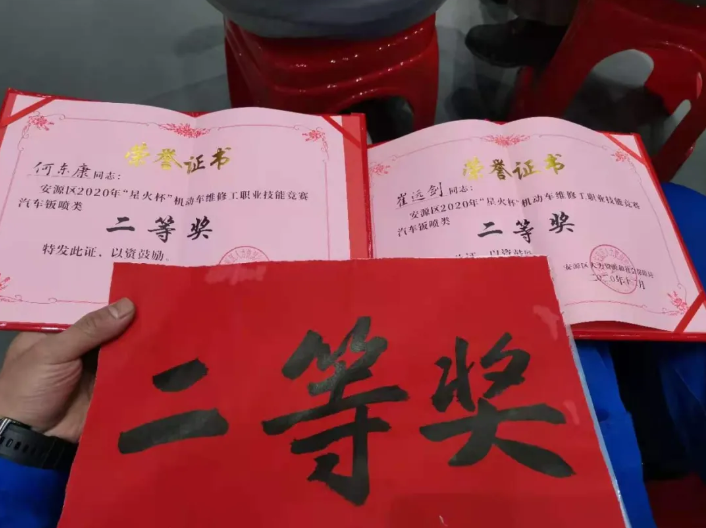 荣誉证书
何东康同志：
安源区2020年“星火杯”机动车维修工职业技能竞赛
汽车钣喷类
二等奖
特发此证，以资鼓励。
荣誉证书
崔远剑同志：
安源区2020年“星火杯”机动车维修工职业技能竞赛
汽车钣喷类
二等奖
以资鼓励。
安源区人力资源和社会保障局
二等奖